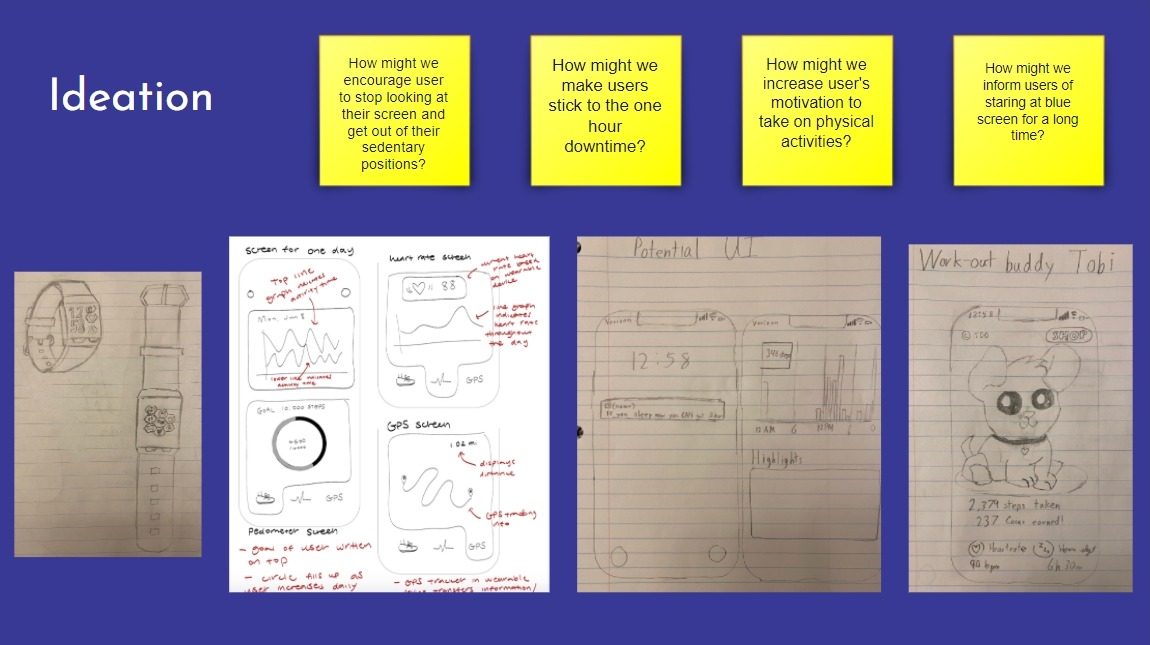 Ideation
How might we
encourage user
to stop looking at
their screen and
get out of their
sedentary
positions?
How might we
make users
stick to the one
hour
downtime?
How might we
increase user's
motivation to
take on physical
activities?
How might we
inform users of
staring at blue
screen for a long
time?
screen for one day
Top line
graph indicates
activity time
Mon, Jan 8
lower line indicates
activity time
GOAL 10,000 STEPS
GPS
Pedometer screen
- goal of user written
on top
- circle fills up as
user increases daily
heart rate screen
current heart
rate based
on wearable
device
88
line graph
indicates
heart rate
throughout
the day
GPS
GPS screen
1.02 mi
displays
distance
GPS tracking
info
GPS
- GPS tracker in wearable
transfers information/
Potential UI
Verizon
12:58
Verizon
12 AM 6 12 PM 6
Highlights
Work-out buddy Tobi
12:58
SHOP
2,379 steps taken
237 Coins earned!
Heart rate
90 bpm
6h 30m